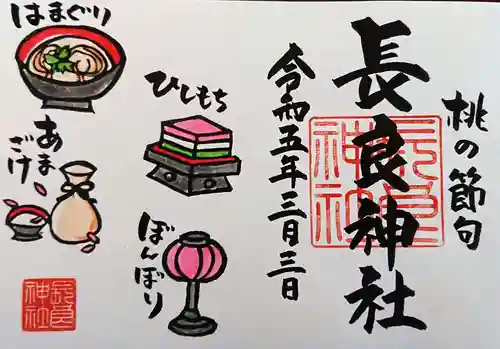 桃の節句
長良神社
長良神社
令和五年三月三日
はまぐり
ひしもち
あま
ざけ
ぼんぼり
長良
神社